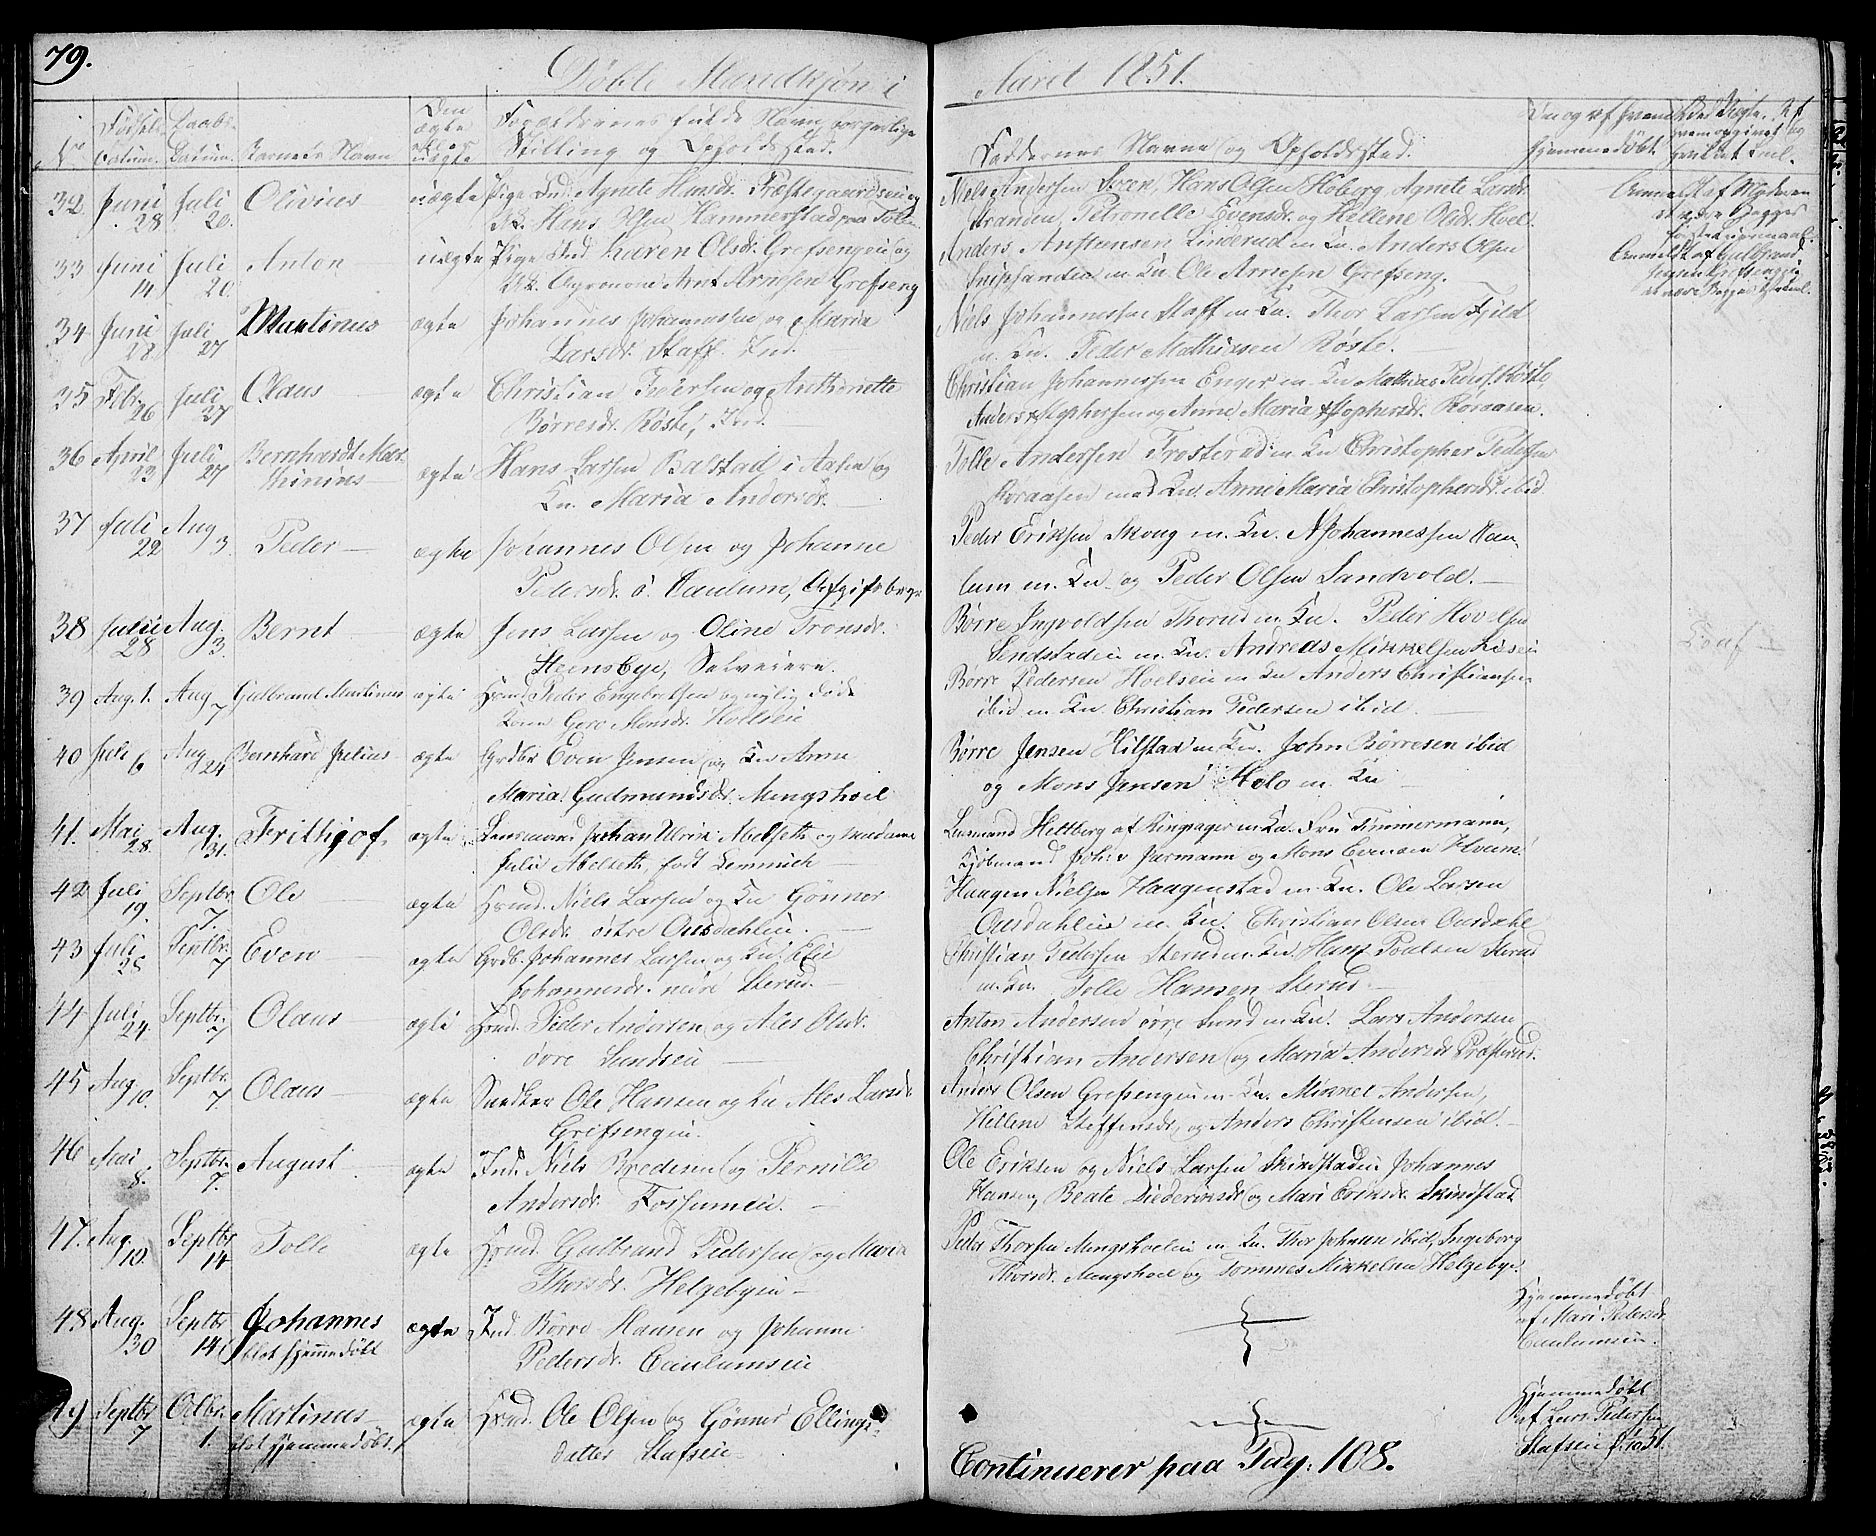 79.
Døbte Mandkjøn i Aaret 1851.
No Fødsels Datum. Daabs Datum. Barnets Navn Den ægte eller uægte Forældrenes fulde Navn, borgerlige Stilling og Opholdssted. Faddernes Navne og Opholdssted. hjemmedøbt.
32 Juni 28 Juli 20. Olivius uægte Pige Ind. Agnete Hansdr. Præstegaardseie og
Hans Olsen Hammerstad paa Toten
Niels Andersen Sveen, Hans Olsen Hoberg, Agnete Larsdr.
Stranden, Petronelle Evensdr. og Hellene Olsdr. Hoel.
Anmeldt af Moderen
at være Begges
første Leiermaal.
33 Juni 14 Juli 20. Anton uægte Pige Ind. Karen Olsdr. Grefsengeie og
Agronom Arnt Arnesen Grefseng
Anders Anstensen Linderud m. Kn. Anders Olsen
m. Kn. Ole Arnesen Grefseng.
Anmeldt af Gulbrand
34 Juni 28 Juli 27 Martinus ægte Johannes Johannessen og Maria
Larsdr. Staff. Ind.
Niels Johannessen Staff m. Kn. Thor Larsen Fjeld
m. Kn. Peder Mathiasen Røste.
35 Febr. 26 Juli 27 Olaus ægte Christian Pedersen og Anthonette
Børresdr. Røste, Ind.
Christian Johannessen Enger m. Kn. Mathias Peders. Røste
Anders og Anne Maria Roraasen.
36 April 23 Juli 27 Bernhardt Mar-
thinius ægte Hans Larsen Balstad i Aasen og
Kn. Maria Andersdr.
Tolle Andersen Frosterud m. Kn. Christopher Pedersen
Roraasen med Kn. Anne Maria Christophersdr. ibid
37 Juli 22 Aug 3. Peder ægte Johannes Olsen og Johanne
Pedersdr. ø. Kaulum,
Peder Eriksen Skoug m. Kn. N Johannessen Kau-
lum m. Kn. og Peder Olsen Sandvold.
38 Julii 28 Aug. 3. Bernt ægte Jens Larsen og Oline Tronsdr.
Heensbye, Selveiere.
Børre Ingvoldsen Thorud m. Kn. Peder Hovelsen
Sendstadeie m. Kn. Andreas Mikkelsen
39 Aug. 1. Aug 7 Gulbrand Martinus ægte Hmd. Peder Engebretsen og nylig døde
Kone Goro Monsdr. Hoelseie
Børre Pedersen Hoelseie m Kn Anders Christiansen
ibid m. Kn. Christian Pedersen ibid.
40 Juli 6 Aug 24 Bernhard Julius ægte Grdbr Even Jensen og Kn Anne
Maria Gudmundsdr. Mengshoel
Børre Jensen Hilstad m Kn. John Børresen ibid
og Mons Jensen Holo m. Kn
41. Mai 28. Aug. 31. Frithjof. ægte Lensmand Johan Ulrik Abelseth og Madame
Julie Abelseth, født Lemmich
Lensmand Heltberg af Ringsager m Kn. Fru Timmermann,
Kjøbmand Joh. Jarmann og Mons Evensen Hvam.
42 Juli 19. Septbr. 7. Ole ægte Hmd. Niels Larsen og Kn Gønner
Olsdr. østre Ousdahlen.
Haagen Nielsen Haagenstad m Kn. Ole Larsen
Ousdahlen m. Kn. Christian Olsen Ousdahl
43 Juli 28 Septbr. 7 Even ægte Grdb. Johannes Larsen og Kn. Elie
Johannesdr. nedre Sterud.
Christian Pedersen Sterud m. Kn. Hans Poulsen Sterud
m. Kn. Tolle Hansen Sterud
44 Juli 24. Septbr. 7 Olaus ægte Hmd. Peder Andersen og Ales Olsdr.
øvre Sundseie
Anton Andersen øvre Lund m Kn. Lars Andersen
Christian Andersen og Maria Andersdr. Præsterud.
45 Aug. 10. Septbr. 7. Olaus ægte Snedker Ole Hansen og Kn Ales Larsdr
Grefsengeie.
Anders Olsen Grefsengeie m. Kn. Mikkel Andersen,
Hellene Steffensdr. og Anders Christensen ibid.
46 Mai 8. Septbr. 7. August ægte Ind. Niels Bredesen og Pernille
Andersdr. Fossumeie.
Ole Eriksen og Niels Larsen Skindstadeie Johannes
Hansen, Beate Diederiksdr og Mari Eriksdr. Skindstad
47. Aug. 10. Septbr 14 Tolle ægte Hmd. Gulbrand Pedersen og Maria
Thorsdr. Helgebyeie
Peder Thorsen Mengshoeleie m Kn. Thor Johnsen ibid, Ingeborg
Thorsdr. Mengshoel og Tommes Mikkelsen Helgebye.
48 Aug. 30 Septbr 14 Johannes
blot hjemmedøbt ægte Ind. Børre Hansen og Johanne
Pedersdr. Caulumseie
Hjemmedøbt
af Mari Pedersdr
Caulumseie.
49 Septbr 7 Octbr. 1. Martinus
blot hjemmedøbt. ægte Hmd. Ole Olsen og Gønner Ellings-
datter Stafseie
Hjemmedøbt
af Lars Pedersen
Stafseie
Continuerer paa Pag: 108.